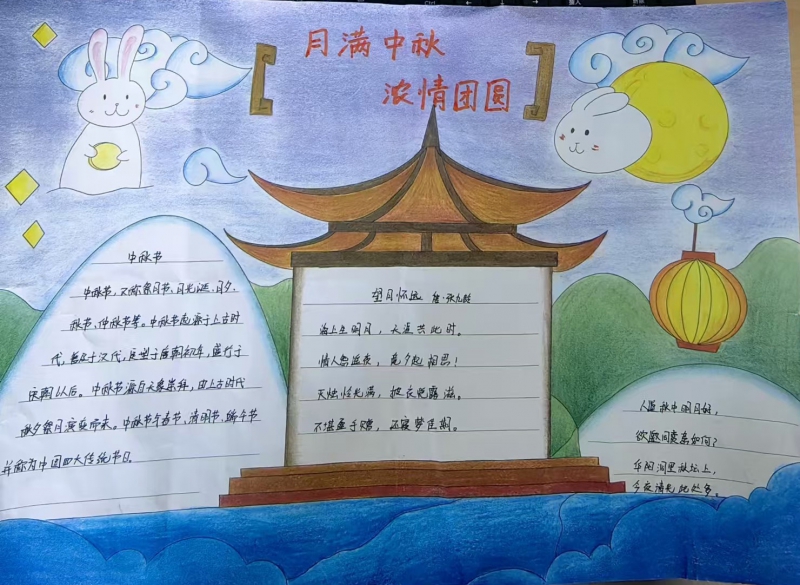 月满中秋
浓情团圆
中秋节
中秋节，又称祭月节、月光诞、月夕、
秋节、仲秋节等。中秋节起源于上古时
代，普及于汉代，定型于唐朝初年，盛行于
宋朝以后。中秋节源自天象崇拜，由上古时代
秋夕祭月演变而来。中秋节与春节、清明节、端午节
并称为中国四大传统节日。
望月怀远 唐·张九龄
海上生明月，天涯共此时。
情人怨遥夜，竟夕起相思！
灭烛怜光满，披衣觉露滋。
不堪盈手赠，还寝梦佳期。
人道秋中明月好，
欲邀同赏意如何？
华阳洞里秋坛上，
今夜清光此处多。